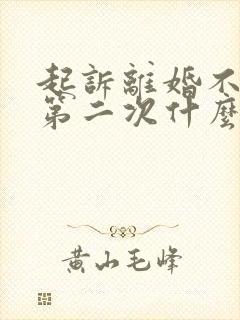 起訴離婚不
第二次什麼
黄山毛峰